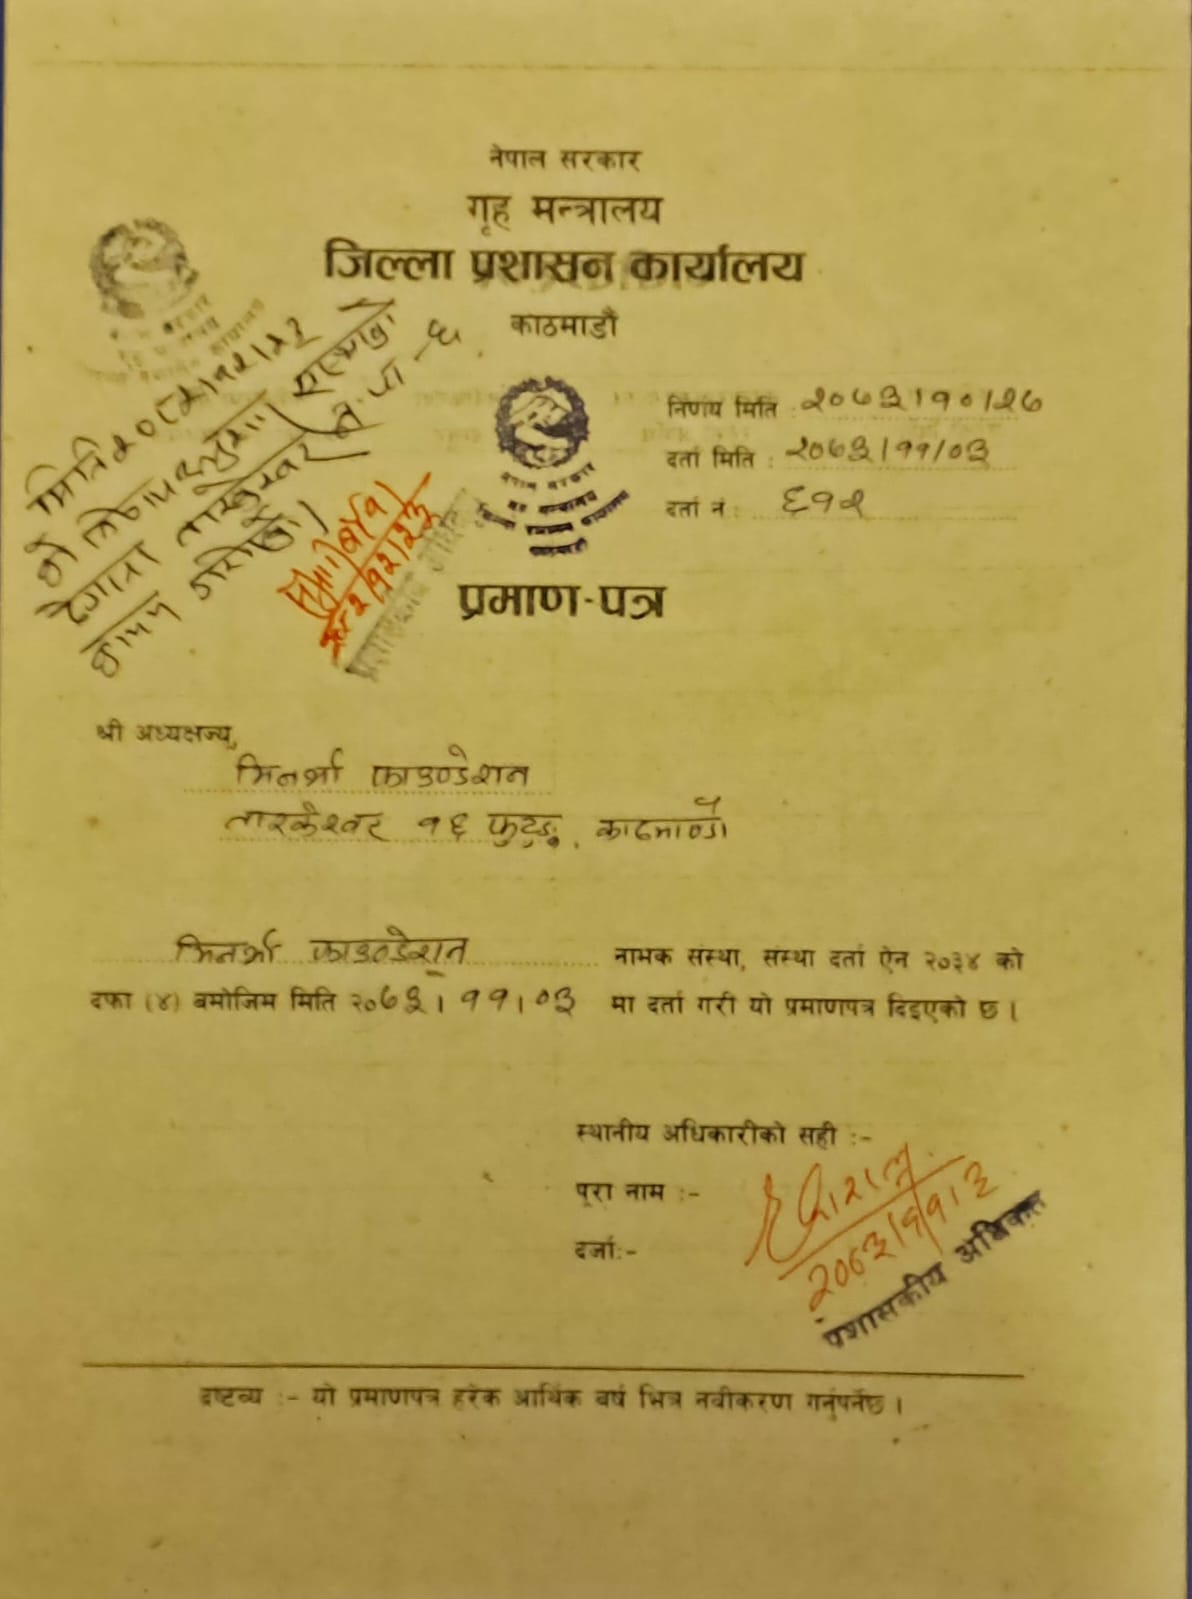 नेपाल सरकार
गृह मन्त्रालय
जिल्ला प्रशासन कार्यालय
काठमाडौं
मिति २०८२।१२।२३
को
ठेगाना तारकेश्वर न.पा-६
कायम गरिएको।
निर्णय मिति : २०७३।१०।२७
दर्ता मिति : २०७३।११।०३
दर्ता नं : ६१२
नेपाल सरकार
गृह मन्त्रालय
जिल्ला प्रशासन कार्यालय
काठमाडौं
प्रमाण-पत्र
श्री अध्यक्षज्यू,
मिनर्भा फाउण्डेशन
तारकेश्वर १६ फुटुङ, काठमाण्डौ
मिनर्भा फाउण्डेशन नामक संस्था, संस्था दर्ता ऐन २०३४ को
दफा (४) बमोजिम मिति २०७३।११।०३ मा दर्ता गरी यो प्रमाणपत्र दिइएको छ।
स्थानीय अधिकारीको सही :-
पूरा नाम :-
दर्जा:-
२०७३।११।३
प्रशासकीय अधिकृत
द्रष्टव्य :- यो प्रमाणपत्र हरेक आर्थिक वर्ष भित्र नवीकरण गर्नुपर्नेछ।